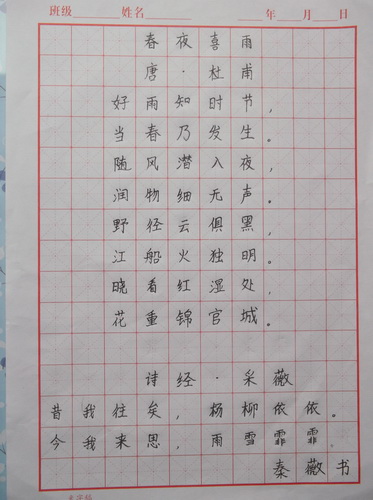 班级 姓名 年 月 日
春夜喜雨
唐·杜甫
好雨知时节，
当春乃发生。
随风潜入夜，
润物细无声。
野径云俱黑，
江船火独明。
晓看红湿处，
花重锦官城。
诗经·采薇
昔我往矣，杨柳依依。
今我来思，雨雪霏霏
秦薇书